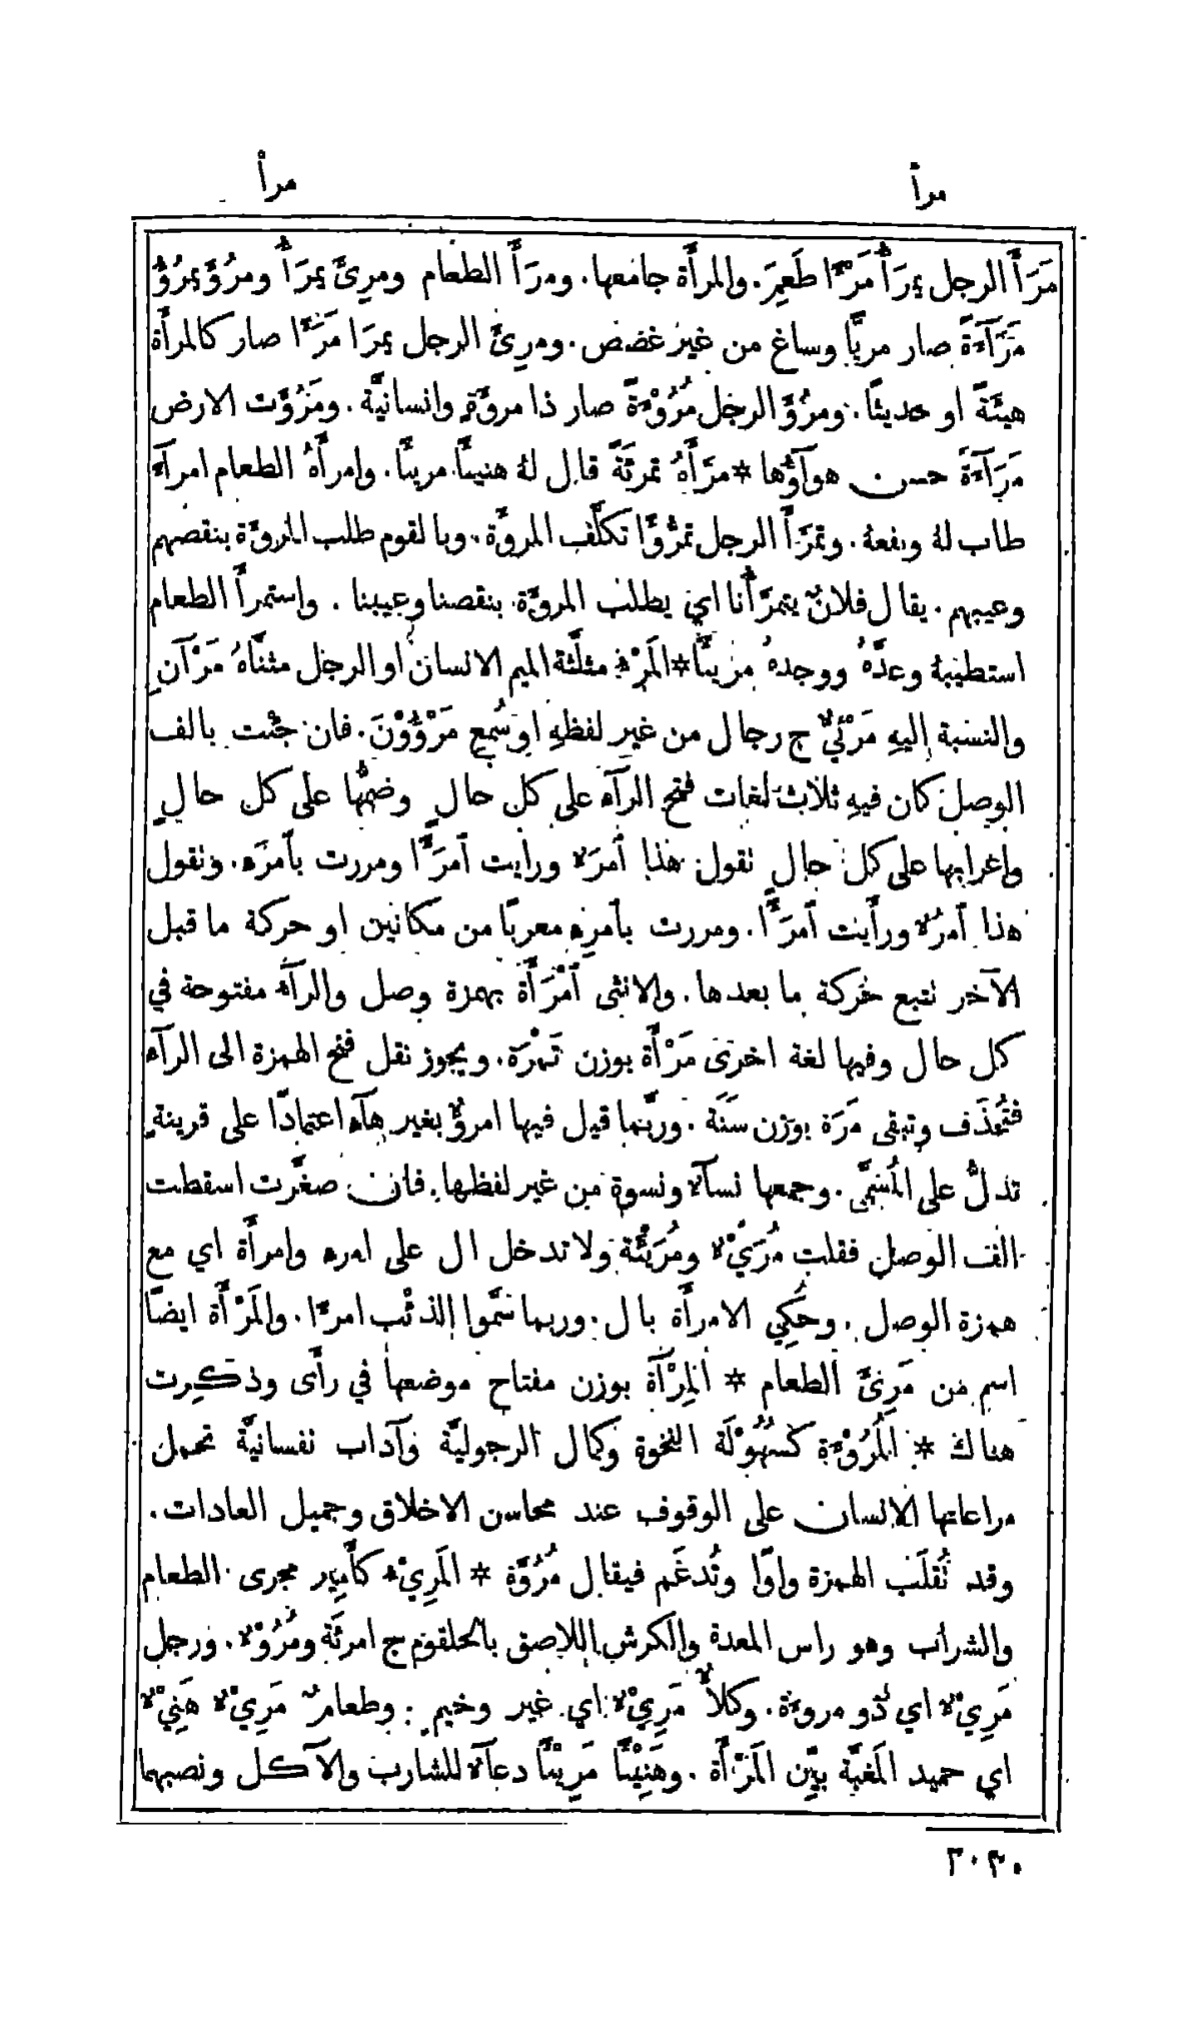 مرأ
مرأ
مَرَأَ الرجل يمرَأُ مَرْءًا طَعِمَ. والمرأَة جامعها. ومرَأَ الطعام ومرِئَ يمرَأُ ومرُؤَ يمرُؤُ
مَرَآءَةً صار مريًّا وساغ من غير غصص. ومرِئَ الرجل يمرَا مَرَءًا صار كالمرأَة
هيئةً او حديثًا. ومرُؤَ الرجل مُرُوْءَةً صار ذا مروَّةٍ وانسانيَّة. ومَرُؤَت الارض
مَرَآءَةً حسن هوآؤُها * مرَّأَهُ تمرئَةً قال لهُ هنيئًا مريئًا. وامرأَهُ الطعام امرآءً
طاب لهُ ونفعهُ. وتمرَّأَ الرجل تمرُّؤًا تكلَّف المروَّة. وبالقوم طلب المروَّة بنقصهم
وعيبهم. يقال فلانٌ يتمرَّأُنا اي يطلب المروَّة بنقصنا وعيبنا. واستمرأَ الطعام
استطيبهُ وعدَّهُ ووجدهُ مريئًا * المَرْء مثلَّثة الميم الانسان او الرجل مثنَّاهُ مَرْآنِ
والنسبة اليهِ مَرْئيٌّ ج رجال من غير لفظهِ او سُمِع مَرْؤُوْنَ. فان جئت بالف
الوصل كان فيهِ ثلاث لغات فتح الرآء على كل حالٍ وضمُّها على كل حالٍ
واعرابها على كل حال نقول هذا ٱمرَءٌ ورايت ٱمرَءًا ومررت بٱمرَءٍ. ونقول
هذا ٱمرُءٌ ورأَيت ٱمرَءًا. ومررت بٱمرِءٍ معربًا من مكانين او حركة ما قبل
الآخر نتبع حركة ما بعدها. والانثى ٱمْرَأَة بهمزة وصل والرآء مفتوحة في
كل حال وفيها لغة اخرى مَرْأَة بوزن تَمْرَة. ويجوز نقل فتح الهمزة الى الرآء
فتُحذَف وتبقى مَرَة بوزن سَنَة. وربَّما قيل فيها امرؤٌ بغير هآءٍ اعتمادًا على قرينةٍ
تدلُّ على المُسَمَّى. وجمعها نسآء ونسوة من غير لفظها. فان صغَّرت اسقطت
الف الوصل فقلت مُرَيْءٌ ومُرَيْئَة ولا تدخل ال على امرء وامرأَة اي مع
همزة الوصل. وحُكِي الامرأَة بال. وربما سَمَّوا الذئْب امرءًا. والمَرْأَة ايضًا
اسم من مَرِئَ الطعام * المِرْآة بوزن مفتاح موضعها في رأَى وذكرت
هناك * المُرُوْءَة كسُهُوْلَة النخوة وكمال الرجوليَّة وآداب نفسانيَّة تحمل
مراعاتها الانسان على الوقوف عند محاسن الاخلاق وجميل العادات.
وقد تُقلَب الهمزة واوًا وتُدغَم فيقال مُرُوَّة * المَرِيْء كأَمير مجرى الطعام
والشراب وهو راس المعدة والكرش اللاصق بالحلقوم ج امرئَة ومُرُوْءٌ. ورجل
مَرِيْءٌ اي ذو مروءَة. وكلأٌ مَرِيْءٌ اي غير وخيم. وطعامٌ مَرِيْءٌ هَنِيْءٌ
اي حميد المَغبَّة بيِّن المَرْأَة. وهَنِيْئًا مَرِيْئًا دعآء للشارب والآكل ونصبهما
٢٠٣٠